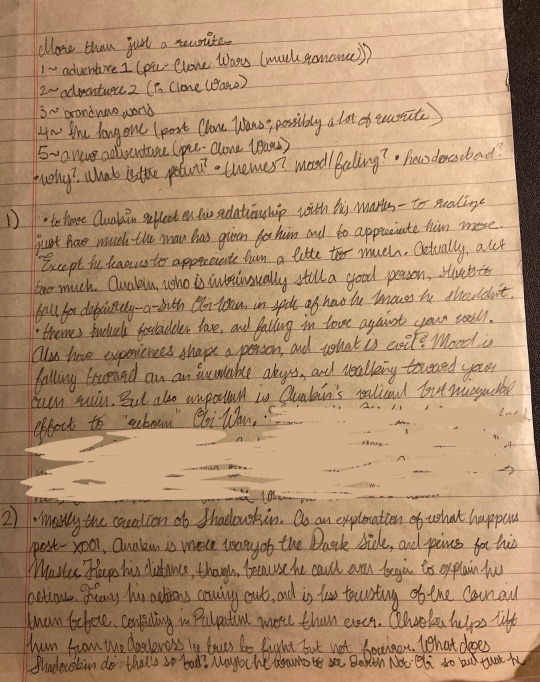 More than just a rewrite.
1~ adventure 1 (pre-Clone Wars (much romance))
2~ adventure 2 (in Clone Wars)
3~ brandnew world
4~ the long one (post Clone Wars; possibly a lot of rewrite)
5~ a new adventure (pre-Clone Wars)
• why? what is the point? • themes? mood/feeling? • how does it end?
1) • to have Anakin reflect on his relationship with his master - to realize
just how much the man has given for him and to appreciate him more.
Except he learns to appreciate him a little too much. Actually, a lot
too much. Anakin, who is intrinsually still a good person, starts to
fall for definitely-a-sith Obi-Wan, in spite of how he knows he shouldn't.
• themes include forbidden love, and falling in love against your will.
Also how experiences shape a person, and what is evil? Mood is
falling toward an an inevitable abyss, and walking toward your
own ruin. But also important is Anakin's valiant but misguided
effort to "reborn" Obi-Wan.
2) • Mostly the creation of Shadowkin. As an exploration of what happens
post-X001, Anakin is more wary of the Dark Side, and pines for his
Master. Keeps his distance, though, because he can't even begin to explain his
actions. Fears his actions coming out, and is less trusting of the Council
than before, confiding in Palpatine more than ever. Ahsoka helps lift
him from the darkness he tries to fight but not forever. What does
Shadowkin do that's so bad? Maybe he wants to see Darth Not-Obi so bad that he